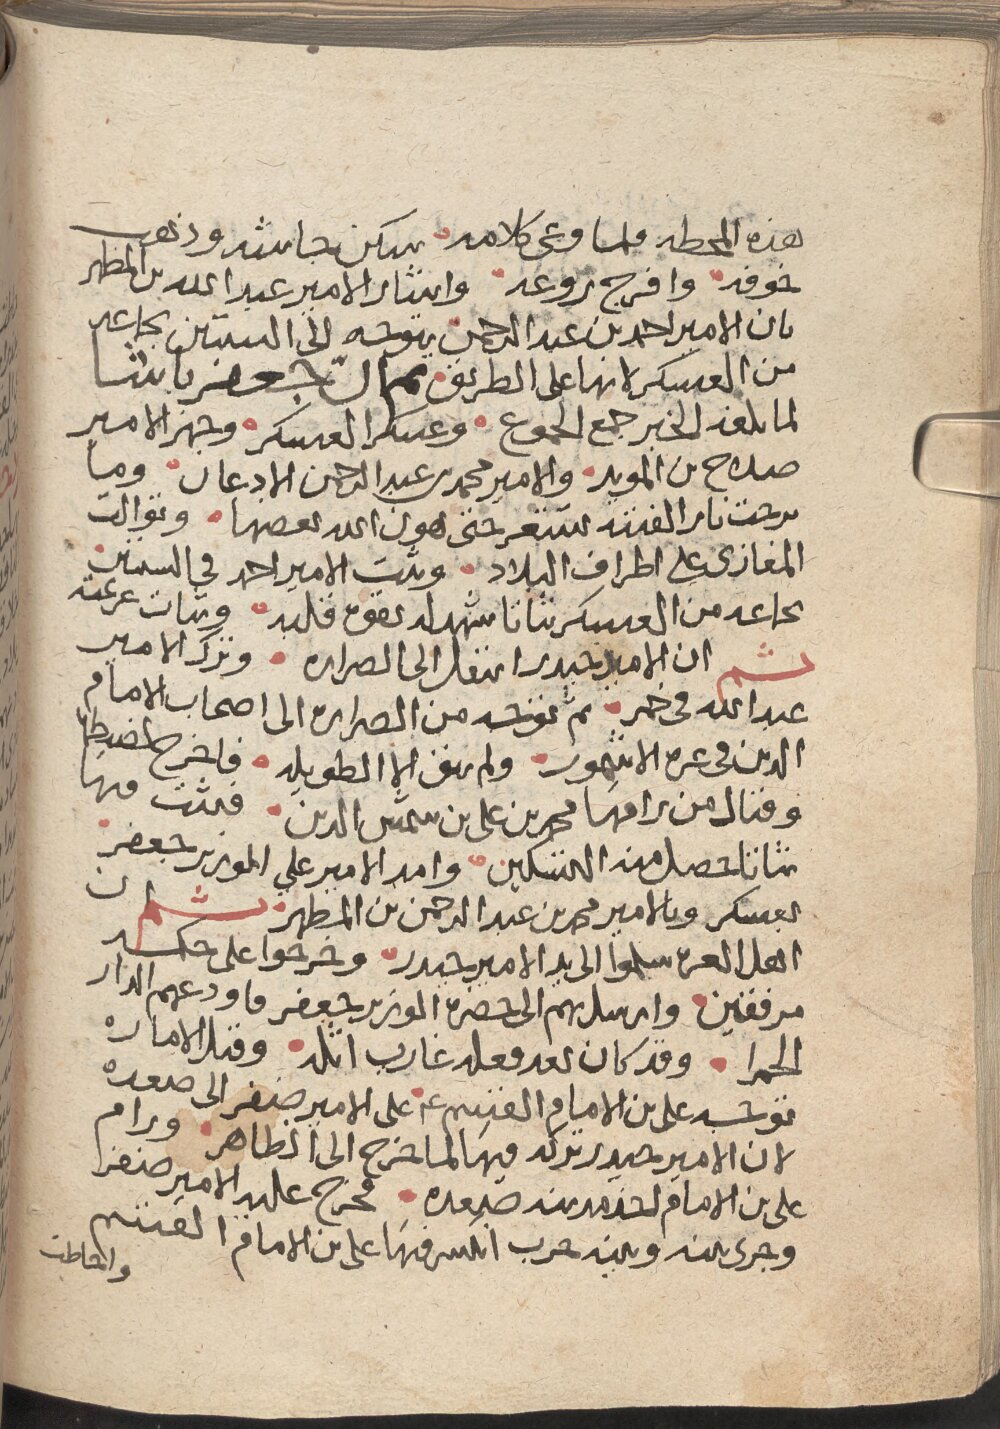 هذه المحطه فلما وعى كلامه سكن جاشه وذهب
خوفه وافرج روعه واشار الامير عبدالله بن المطهر
بان الامير احمد بن عبدالرحمن يتوجه الى السنتين بجماعه
من العسكر لانها على الطريق ثم ان جعفر باشا
لما بلغه الخبر جمع الجموع وعسكر العسكر وجهز الامير
صلاح بن المويد والامير محمد بن عبدالرحمن الا وما
برحت نار الفتنه تستعر حتى هون الله بعضها وتوالت
المغازى على اطراف البلاد وثبت الامير احمد في السنتين
بجماعه من العسكر ثباتا شهد له بقوه قلبه وثبات عزيمته
ثم ان الامير حيدر انتقل الى الصراره وترك الامير
عبدالله فى خمر ثم توجه من الصراره الى اصحاب الامام
الذين فى عره الاشمور ولم يبق الا الطويله فاخرج لضبطها
وقتال من رامها محمد بن على بن شمس الدين فثبت فيها
ثباتا حصل منه التسكين وامد الامير علي الوزير جعفر
بعسكر وبالامير محمد بن عبدالرحمن بن المطهر ثم ان
اهل العره سلموا الى يد الامير حيدر وخرجوا على حكمه
مرفقين وارسل بهم الى حضره الوزير جعفر فاودعهم الدار
الحمرا وقد كان بعد فعله غارب اثله وقتل الاماره
توجه على بن الامام القسم على الامير صفر الى صعده
لان الامير حيدر تركه فيها لما خرج الى الظاهر ورام
على بن الامام اخذ مدينه صعده فخرج عليه الامير صفر
وجرى بينه وبينه حرب انكسر فيها على بن الامام القسم
واحاطت